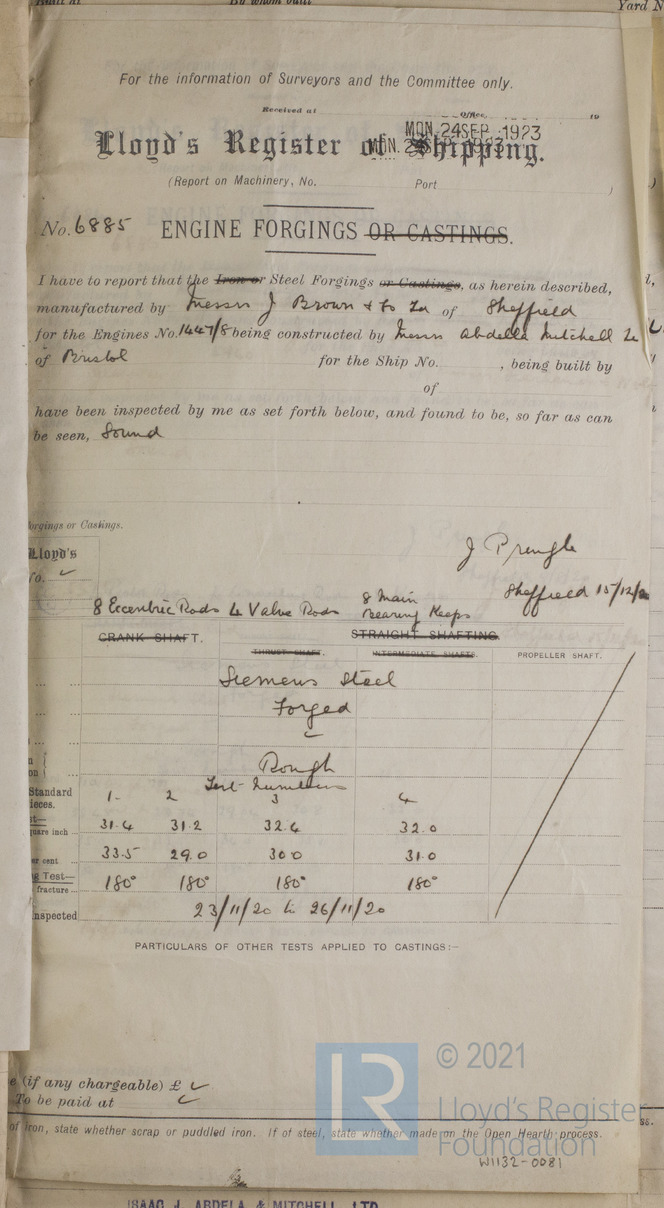 Built at By whom built Yard N
For the information of Surveyors and the Committee only.
Received at Office, 19
MON. 24 SEP. 1923
Lloyd's Register of Shipping.
(Report on Machinery, No. Port )
No. 6885 ENGINE FORGINGS OR CASTINGS.
I have to report that the Iron or Steel Forgings or Castings, as herein described,
manufactured by Messrs J Brown & Co Ld of Sheffield
for the Engines No. 1447/8 being constructed by Messrs Abdella Mitchell Ld
of Bristol for the Ship No. , being built by
of
have been inspected by me as set forth below, and found to be, so far as can
be seen, Sound
orgings or Castings.
Lloyd's
No.
J Pringle
Sheffield 15/12/20
8 Eccentric Rods 4 Valve Rods 8 Main Bearing Keeps
CRANK SHAFT. STRAIGHT SHAFTING
THRUST SHAFT. INTERMEDIATE SHAFTS. PROPELLER SHAFT.
Siemens Steel
Forged
Rough
Test Numbers
Standard 1 2 3 4
ieces.
quare inch 31.4 31.2 32.4 32.0
er cent 33.5 29.0 30.0 31.0
g Test—
fracture 180° 180° 180° 180°
nspected 23/11/20 to 26/11/20
PARTICULARS OF OTHER TESTS APPLIED TO CASTINGS:—
e (if any chargeable) £
To be paid at
of iron, state whether scrap or puddled iron. If of steel, state whether made on the Open Hearth process.
LR © 2021
Lloyd's Register
Foundation
W1132-0081
ISAAC J. ABDELA & MITCHELL, LTD